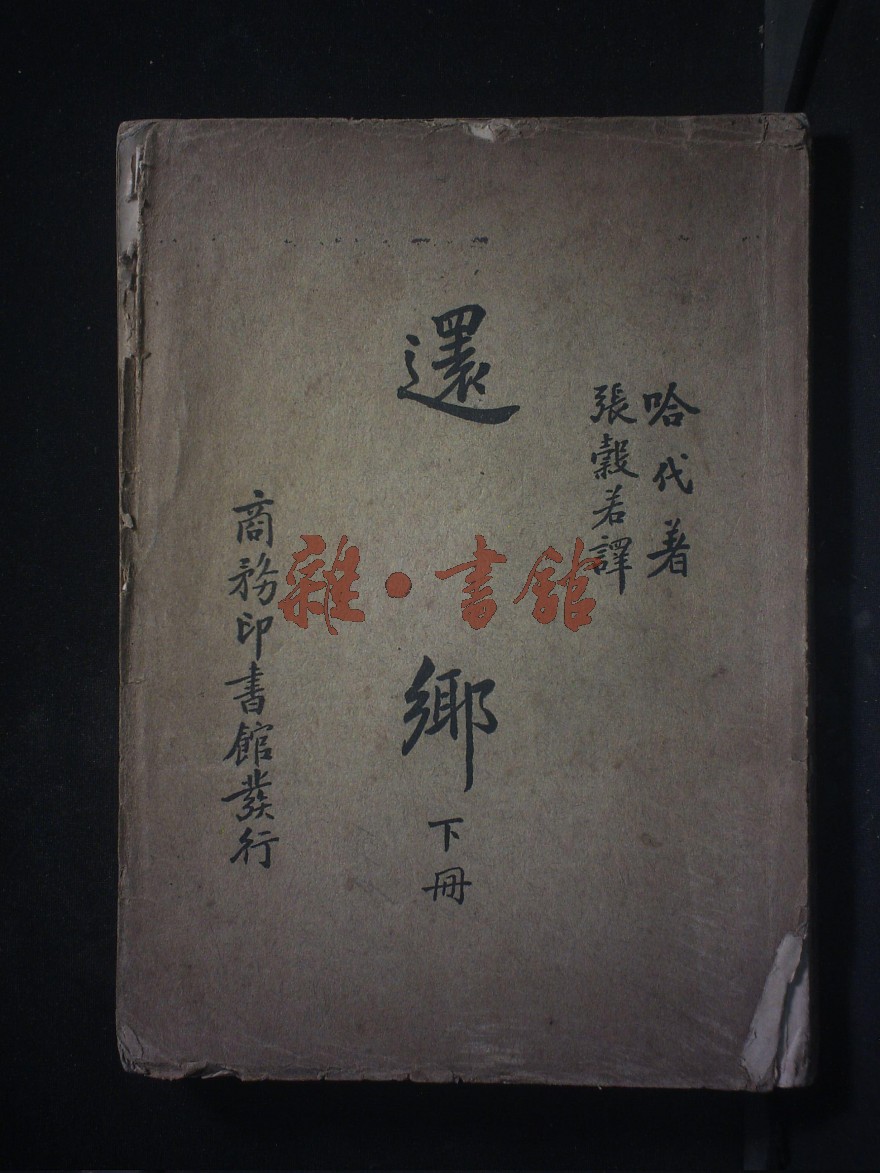 哈代著
張穀若譯
還鄉
下冊
商務印書館發行
雜·書館